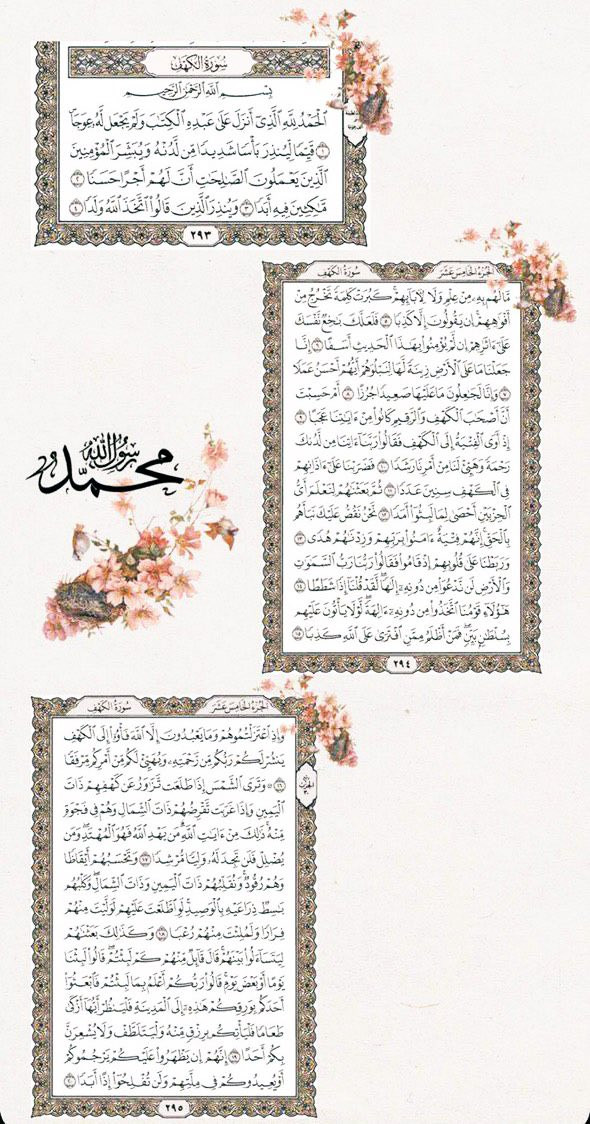 سُورَةُ الكَهْفِ
بِسْمِ اللَّهِ الرَّحْمَنِ الرَّحِيمِ
الْحَمْدُ لِلَّهِ الَّذِي أَنزَلَ عَلَى عَبْدِهِ الْكِتَٰبَ وَلَمْ يَجْعَل لَّهُ عِوَجَا
۝١ قَيِّمًا لِّيُنذِرَ بَأْسًا شَدِيدًا مِّن لَّدُنْهُ وَيُبَشِّرَ الْمُؤْمِنِينَ
الَّذِينَ يَعْمَلُونَ الصَّٰلِحَٰتِ أَنَّ لَهُمْ أَجْرًا حَسَنًا ۝٢
مَّٰكِثِينَ فِيهِ أَبَدًا ۝٣ وَيُنذِرَ الَّذِينَ قَالُوا اتَّخَذَ اللَّهُ وَلَدًا ۝٤
٢٩٣
الجُزْءُ الخَامِسَ عَشَرَ سُورَةُ الكَهْفِ
مَّا لَهُم بِهِ مِنْ عِلْمٍ وَلَا لِآبَائِهِمْ كَبُرَتْ كَلِمَةً تَخْرُجُ مِنْ
أَفْوَٰهِهِمْ إِن يَقُولُونَ إِلَّا كَذِبًا ۝٥ فَلَعَلَّكَ بَٰخِعٌ نَّفْسَكَ
عَلَىٰ ءَاثَٰرِهِمْ إِن لَّمْ يُؤْمِنُوا بِهَٰذَا الْحَدِيثِ أَسَفًا ۝٦ إِنَّا
جَعَلْنَا مَا عَلَى الْأَرْضِ زِينَةً لَّهَا لِنَبْلُوَهُمْ أَيُّهُمْ أَحْسَنُ عَمَلًا
۝٧ وَإِنَّا لَجَٰعِلُونَ مَا عَلَيْهَا صَعِيدًا جُرُزًا ۝٨ أَمْ حَسِبْتَ
أَنَّ أَصْحَٰبَ الْكَهْفِ وَالرَّقِيمِ كَانُوا مِنْ ءَايَٰتِنَا عَجَبًا ۝٩
إِذْ أَوَى الْفِتْيَةُ إِلَى الْكَهْفِ فَقَالُوا رَبَّنَا ءَاتِنَا مِن لَّدُنكَ
رَحْمَةً وَهَيِّئْ لَنَا مِنْ أَمْرِنَا رَشَدًا ۝١٠ فَضَرَبْنَا عَلَىٰ ءَاذَانِهِمْ
فِي الْكَهْفِ سِنِينَ عَدَدًا ۝١١ ثُمَّ بَعَثْنَٰهُمْ لِنَعْلَمَ أَيُّ
الْحِزْبَيْنِ أَحْصَىٰ لِمَا لَبِثُوا أَمَدًا ۝١٢ نَّحْنُ نَقُصُّ عَلَيْكَ نَبَأَهُم
بِالْحَقِّ إِنَّهُمْ فِتْيَةٌ ءَامَنُوا بِرَبِّهِمْ وَزِدْنَٰهُمْ هُدًى ۝١٣
وَرَبَطْنَا عَلَىٰ قُلُوبِهِمْ إِذْ قَامُوا فَقَالُوا رَبُّنَا رَبُّ السَّمَٰوَٰتِ
وَالْأَرْضِ لَن نَّدْعُوَا مِن دُونِهِ إِلَٰهًا لَّقَدْ قُلْنَا إِذًا شَطَطًا ۝١٤
هَٰؤُلَاءِ قَوْمُنَا اتَّخَذُوا مِن دُونِهِ ءَالِهَةً لَّوْلَا يَأْتُونَ عَلَيْهِم
بِسُلْطَٰنٍ بَيِّنٍ فَمَنْ أَظْلَمُ مِمَّنِ افْتَرَىٰ عَلَى اللَّهِ كَذِبًا ۝١٥
٢٩٤
محمد رسول الله
الجُزْءُ الخَامِسَ عَشَرَ سُورَةُ الكَهْفِ
وَإِذِ اعْتَزَلْتُمُوهُمْ وَمَا يَعْبُدُونَ إِلَّا اللَّهَ فَأْوُوا إِلَى الْكَهْفِ
يَنشُرْ لَكُمْ رَبُّكُم مِّن رَّحْمَتِهِ وَيُهَيِّئْ لَكُم مِّنْ أَمْرِكُم مِّرْفَقًا
۝١٦ ۞ وَتَرَى الشَّمْسَ إِذَا طَلَعَت تَّزَٰوَرُ عَن كَهْفِهِمْ ذَاتَ
الْيَمِينِ وَإِذَا غَرَبَت تَّقْرِضُهُمْ ذَاتَ الشِّمَالِ وَهُمْ فِي فَجْوَةٍ
مِّنْهُ ذَٰلِكَ مِنْ ءَايَٰتِ اللَّهِ مَن يَهْدِ اللَّهُ فَهُوَ الْمُهْتَدِ وَمَن
يُضْلِلْ فَلَن تَجِدَ لَهُ وَلِيًّا مُّرْشِدًا ۝١٧ وَتَحْسَبُهُمْ أَيْقَاظًا
وَهُمْ رُقُودٌ وَنُقَلِّبُهُمْ ذَاتَ الْيَمِينِ وَذَاتَ الشِّمَالِ وَكَلْبُهُم
بَٰسِطٌ ذِرَاعَيْهِ بِالْوَصِيدِ لَوِ اطَّلَعْتَ عَلَيْهِمْ لَوَلَّيْتَ مِنْهُمْ
فِرَارًا وَلَمُلِئْتَ مِنْهُمْ رُعْبًا ۝١٨ وَكَذَٰلِكَ بَعَثْنَٰهُمْ
لِيَتَسَاءَلُوا بَيْنَهُمْ قَالَ قَائِلٌ مِّنْهُمْ كَمْ لَبِثْتُمْ قَالُوا لَبِثْنَا
يَوْمًا أَوْ بَعْضَ يَوْمٍ قَالُوا رَبُّكُمْ أَعْلَمُ بِمَا لَبِثْتُمْ فَابْعَثُوا
أَحَدَكُم بِوَرِقِكُمْ هَٰذِهِ إِلَى الْمَدِينَةِ فَلْيَنظُرْ أَيُّهَا أَزْكَىٰ
طَعَامًا فَلْيَأْتِكُم بِرِزْقٍ مِّنْهُ وَلْيَتَلَطَّفْ وَلَا يُشْعِرَنَّ
بِكُمْ أَحَدًا ۝١٩ إِنَّهُمْ إِن يَظْهَرُوا عَلَيْكُمْ يَرْجُمُوكُمْ
أَوْ يُعِيدُوكُمْ فِي مِلَّتِهِمْ وَلَن تُفْلِحُوا إِذًا أَبَدًا ۝٢٠
٢٩٥